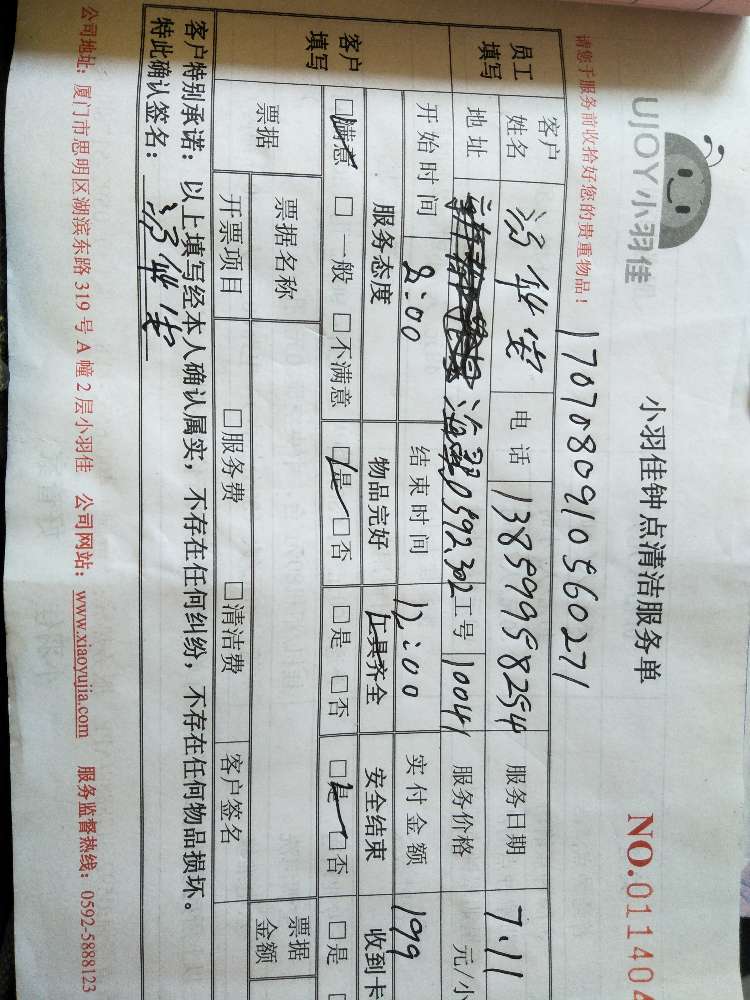 UJOY小羽佳
小羽佳钟点清洁服务单
NO.011404
请您于服务前收拾好您的贵重物品！
17070809105560271
员工填写
客户姓名
电话 13859958254
服务日期 7.11
地址
302
工号 10041
服务价格 元/小
开始时间 8:00
结束时间 12:00
实付金额 199
客户填写
服务态度 物品完好 工具齐全 安全结束 收到卡
□满意 □一般 □不满意 □是 □否 □是 □否 □是 □否 □是
票据
票据名称
票据金额
开票项目 □服务费 □清洁费 客户签名
客户特别承诺：以上填写经本人确认属实，不存在任何纠纷，不存在任何物品损坏。
特此确认签名：
公司地址：厦门市思明区湖滨东路319号A幢2层小羽佳 公司网站：www.xiaoyujia.com 服务监督热线：0592-5888123